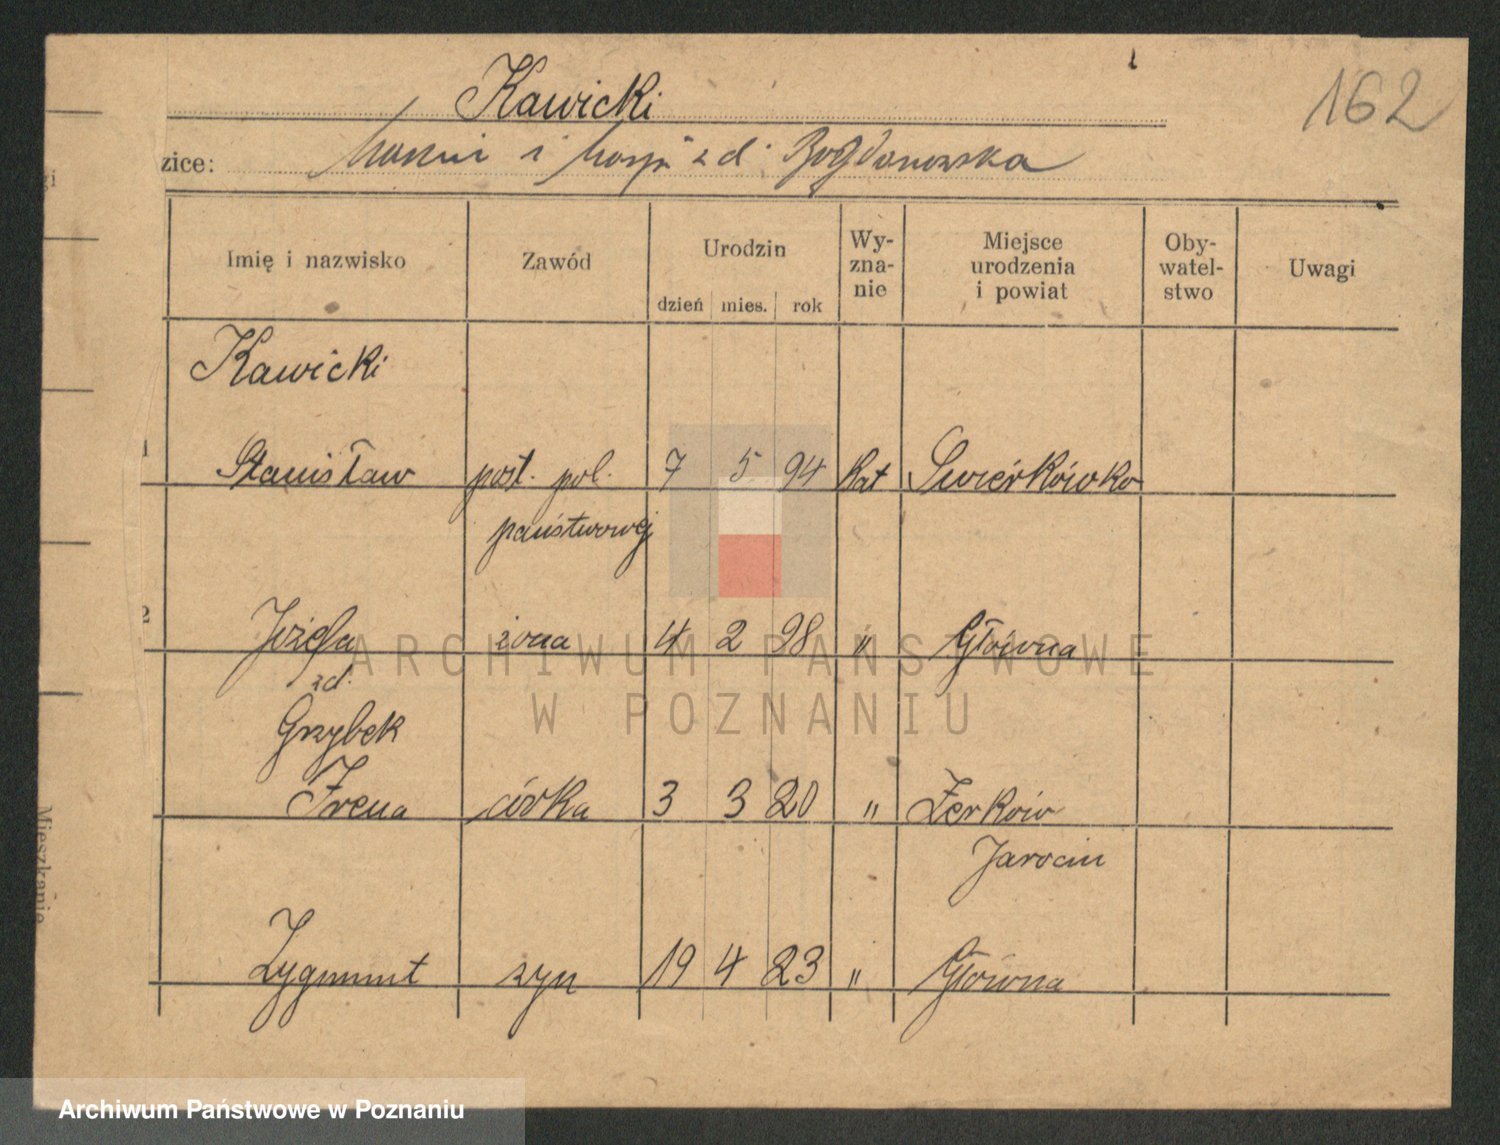 162
Kawicki
zice: i zd. Bogdanowska
Imię i nazwisko Zawód Urodzin dzień mies. rok Wy-zna-nie Miejsce urodzenia i powiat Oby-watel-stwo Uwagi
Kawicki
1 Stanisław post. pol. 7 5 94 kat Swierkówko
państwowej
2 Józefa żona 4 2 98 " Główna
zd.
Grzybek
Irena córka 3 3 20 " Żerków
Jarocin
Zygmunt syn 19 4 23 " Główna
Mieszkanie
ARCHIWUM PAŃSTWOWE
W POZNANIU
Archiwum Państwowe w Poznaniu